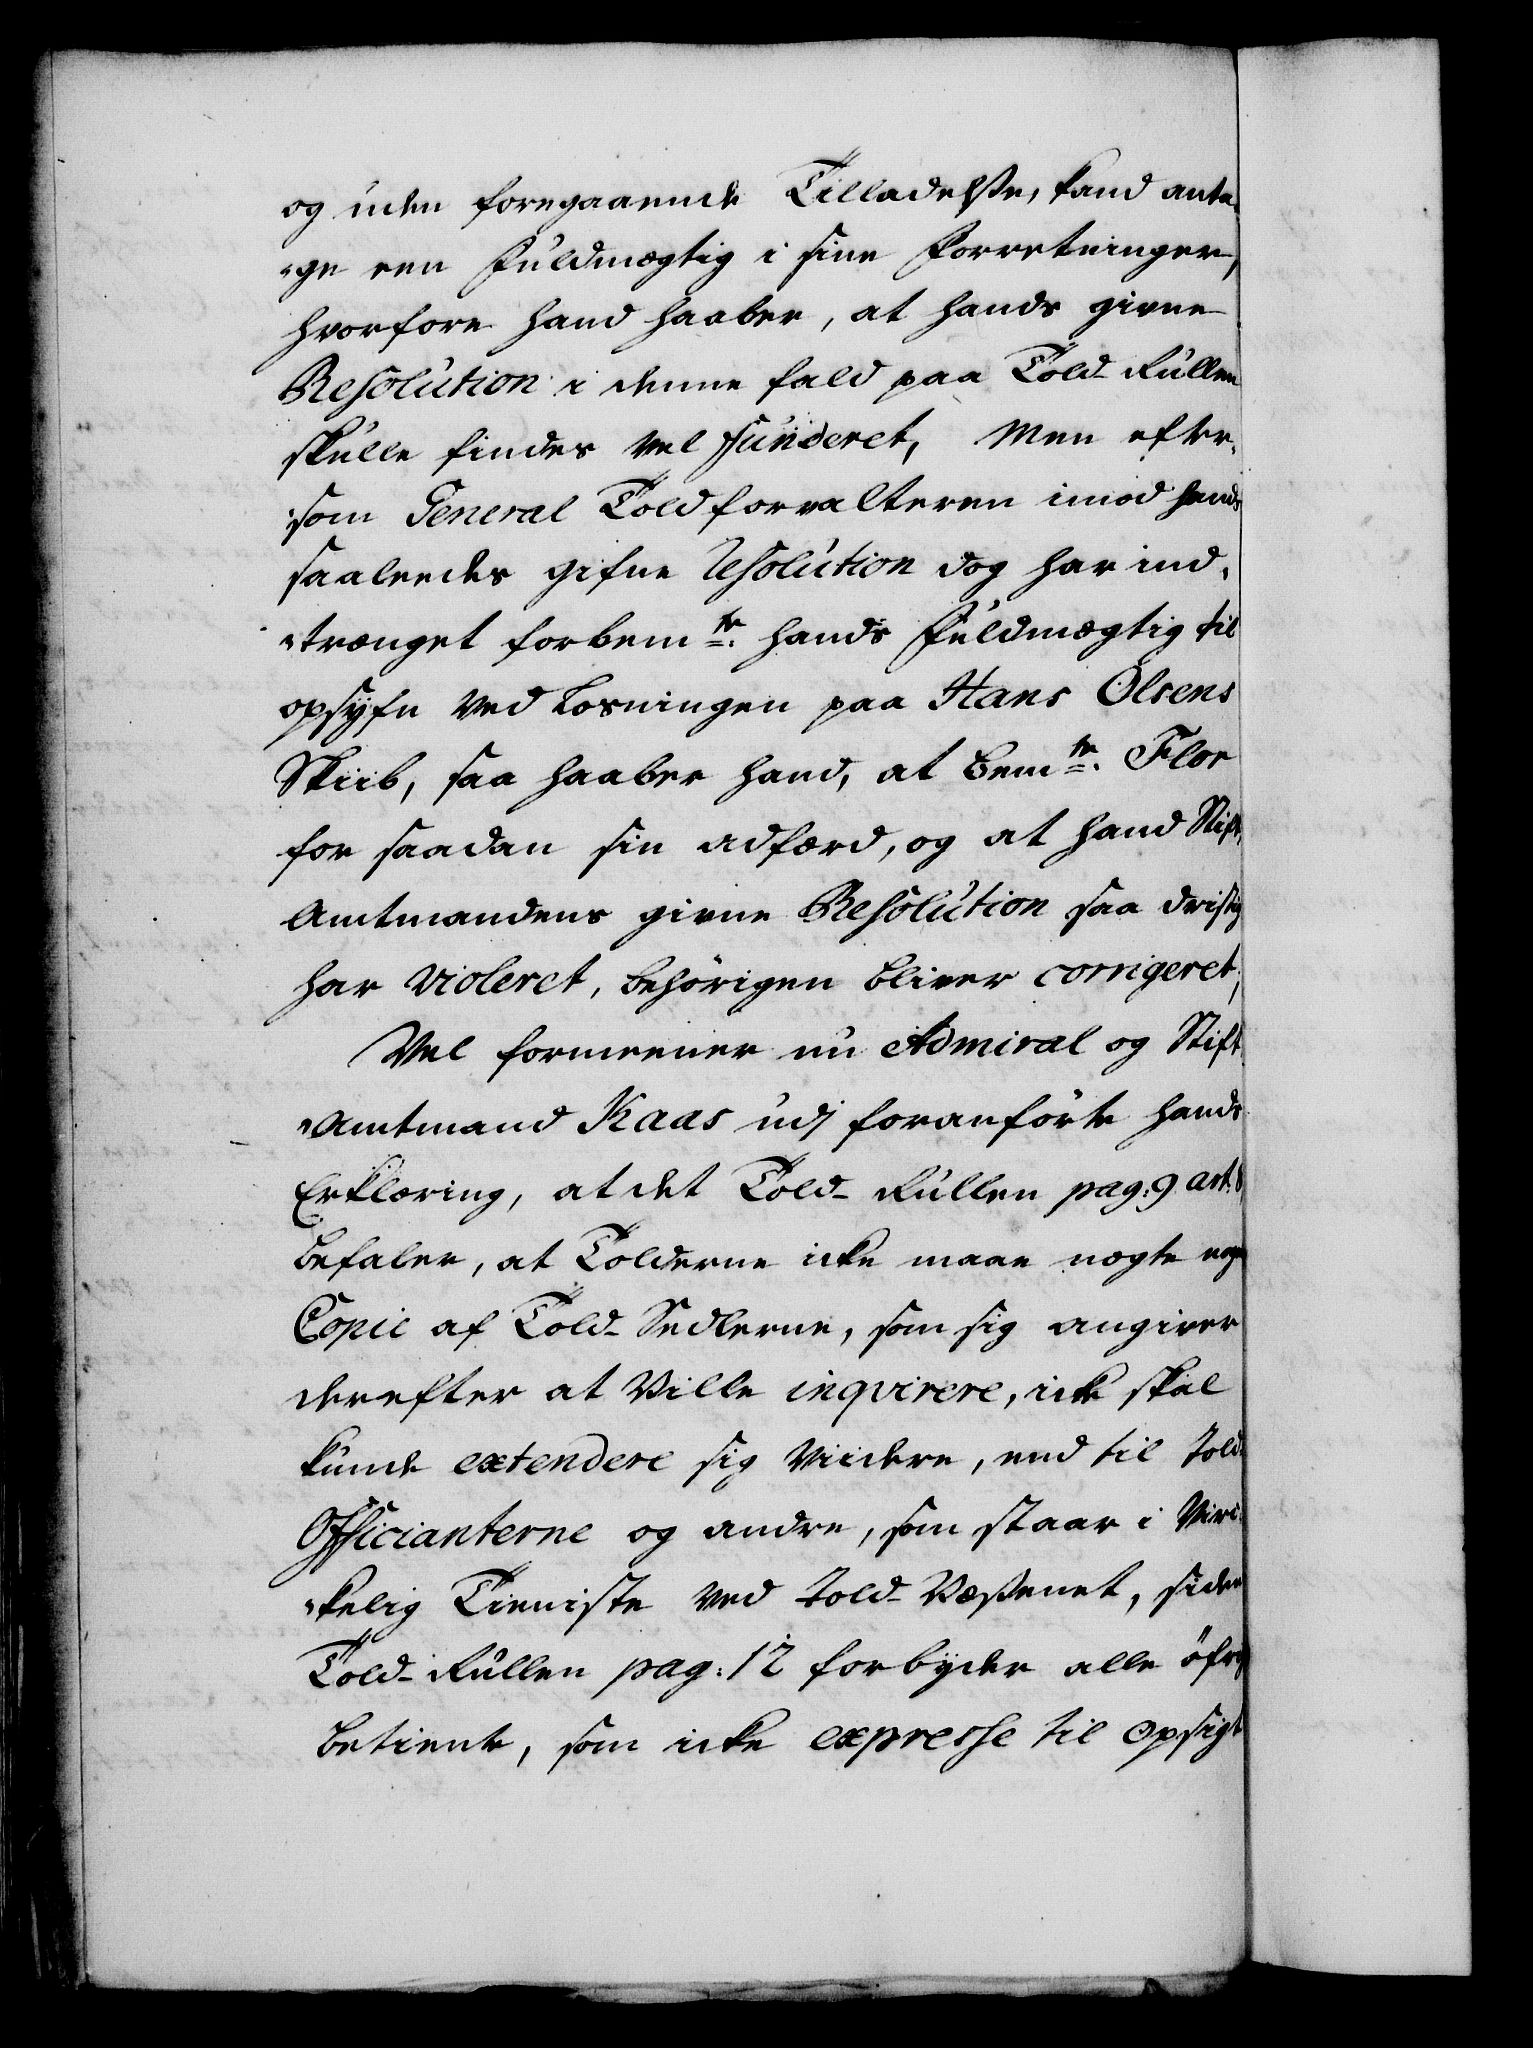 og uden foregaaende Tilladelse, kand anta-
-ge een Fuldmægtig i sine Forretninger,
hvorfore hand haaber, at hands givne
Resolution i denne fald paa Told-Rullen
skulle findes vel funderet, Men efter-
-som General Toldforvalteren imod hands
saaleedes gifne Resolution dog har ind-
-trænget forbemte. hands Fuldmægtig til
opsyfn ved Losningen paa Hans Olsens
Skiib, saa haaber hand, at bemte. Flor
for saadan sin adfærd, og at hand Stift-
Amtmandens givne Resolution saa dristig
har violeret, behörigen bliver corrigeret,
Vel formeener nu Admiral og Stift-
-Amtmand Kaas udj foranförte hands
Erklæring, at det Told-Rullen pag: 9 art: 8
befaler, at Tolderne icke maae nægte nogen
Copie af Told-Sedlerne, som sig angiver
derefter at ville inqvirere, icke skal
kunde extendere sig viidere, end til Told-
Officianterne og andre, som staar i Virc-
-kelig Tieniste ved Told-Væsenet, siden
Told-Rullen pag: 12 forbyder alle öfrige
betiente, som icke expresse til Opsigt